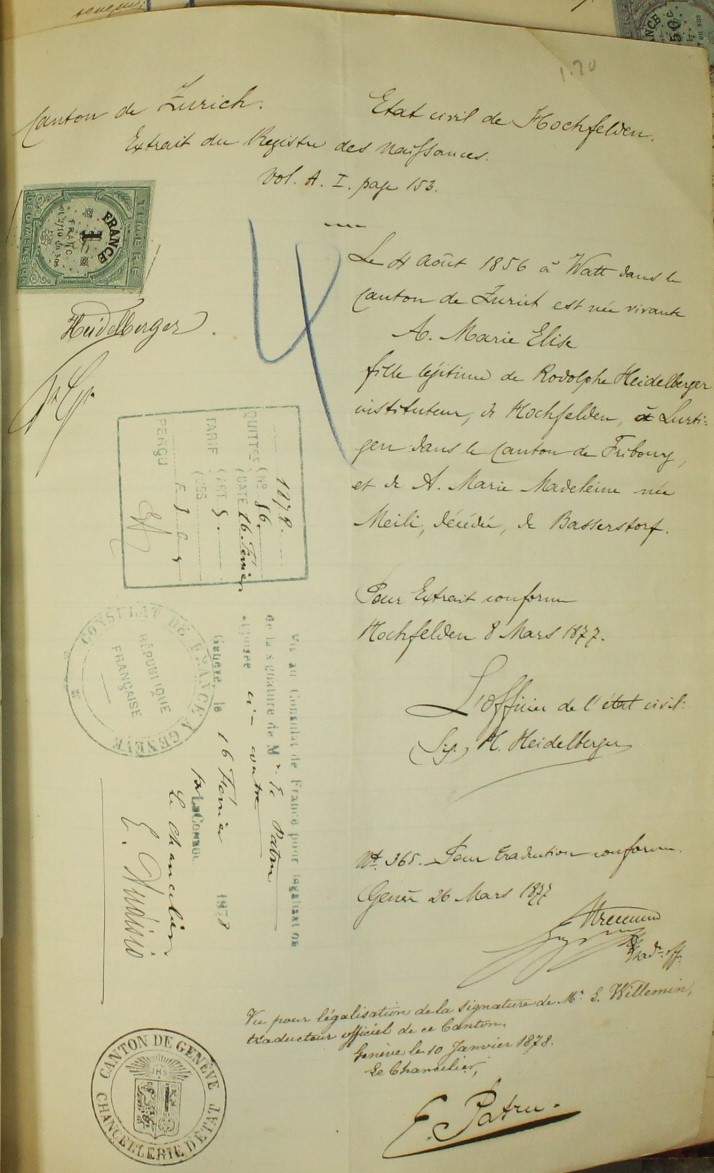 1.70
Canton de Zurich.
Etat civil de Hochfelden.
Extrait du Registre des naissances.
Vol. A. I. page 153.
FRANCE
1
Heidelberger.
4
Le 4 Août 1856 à Watt dans le
Canton de Zurich est née vivante
A. Marie Elise
fille légitime de Rodolphe Heidelberger
instituteur, de Hochfelden, à Lurti-
gen dans le Canton de Fribourg,
et de A. Marie Madeleine née
Meili, décédée, de Basserstorf.
Pour Extrait conforme
Hochfelden 8 Mars 1877.
L'officier de l'état civil:
(Sig.) H. Heidelberger
Nº 365. Pour traduction conforme.
Genève 26 Mars 1877
Trad. off.
1878
QUITTCE Nº 86.
DATE 16 Février
TARIF ART 9
DES
PERÇU
CONSULAT DE FRANCE A GENÈVE
RÉPUBLIQUE
FRANÇAISE
Vu au Consulat de France pour légalisat on
de la signature de Mr. E. Patru
apposée ci-contre
Genève, le 16 Février 1878
Le Consul
Le Chancelier
Vu pour légalisation de la signature de Mr. L. Willemin,
traducteur officiel de ce Canton.
Genève le 10 Janvier 1878.
Le Chancelier,
E. Patru.
CANTON DE GENÈVE
CHANCELLERIE D'ETAT
FRANCE
50c